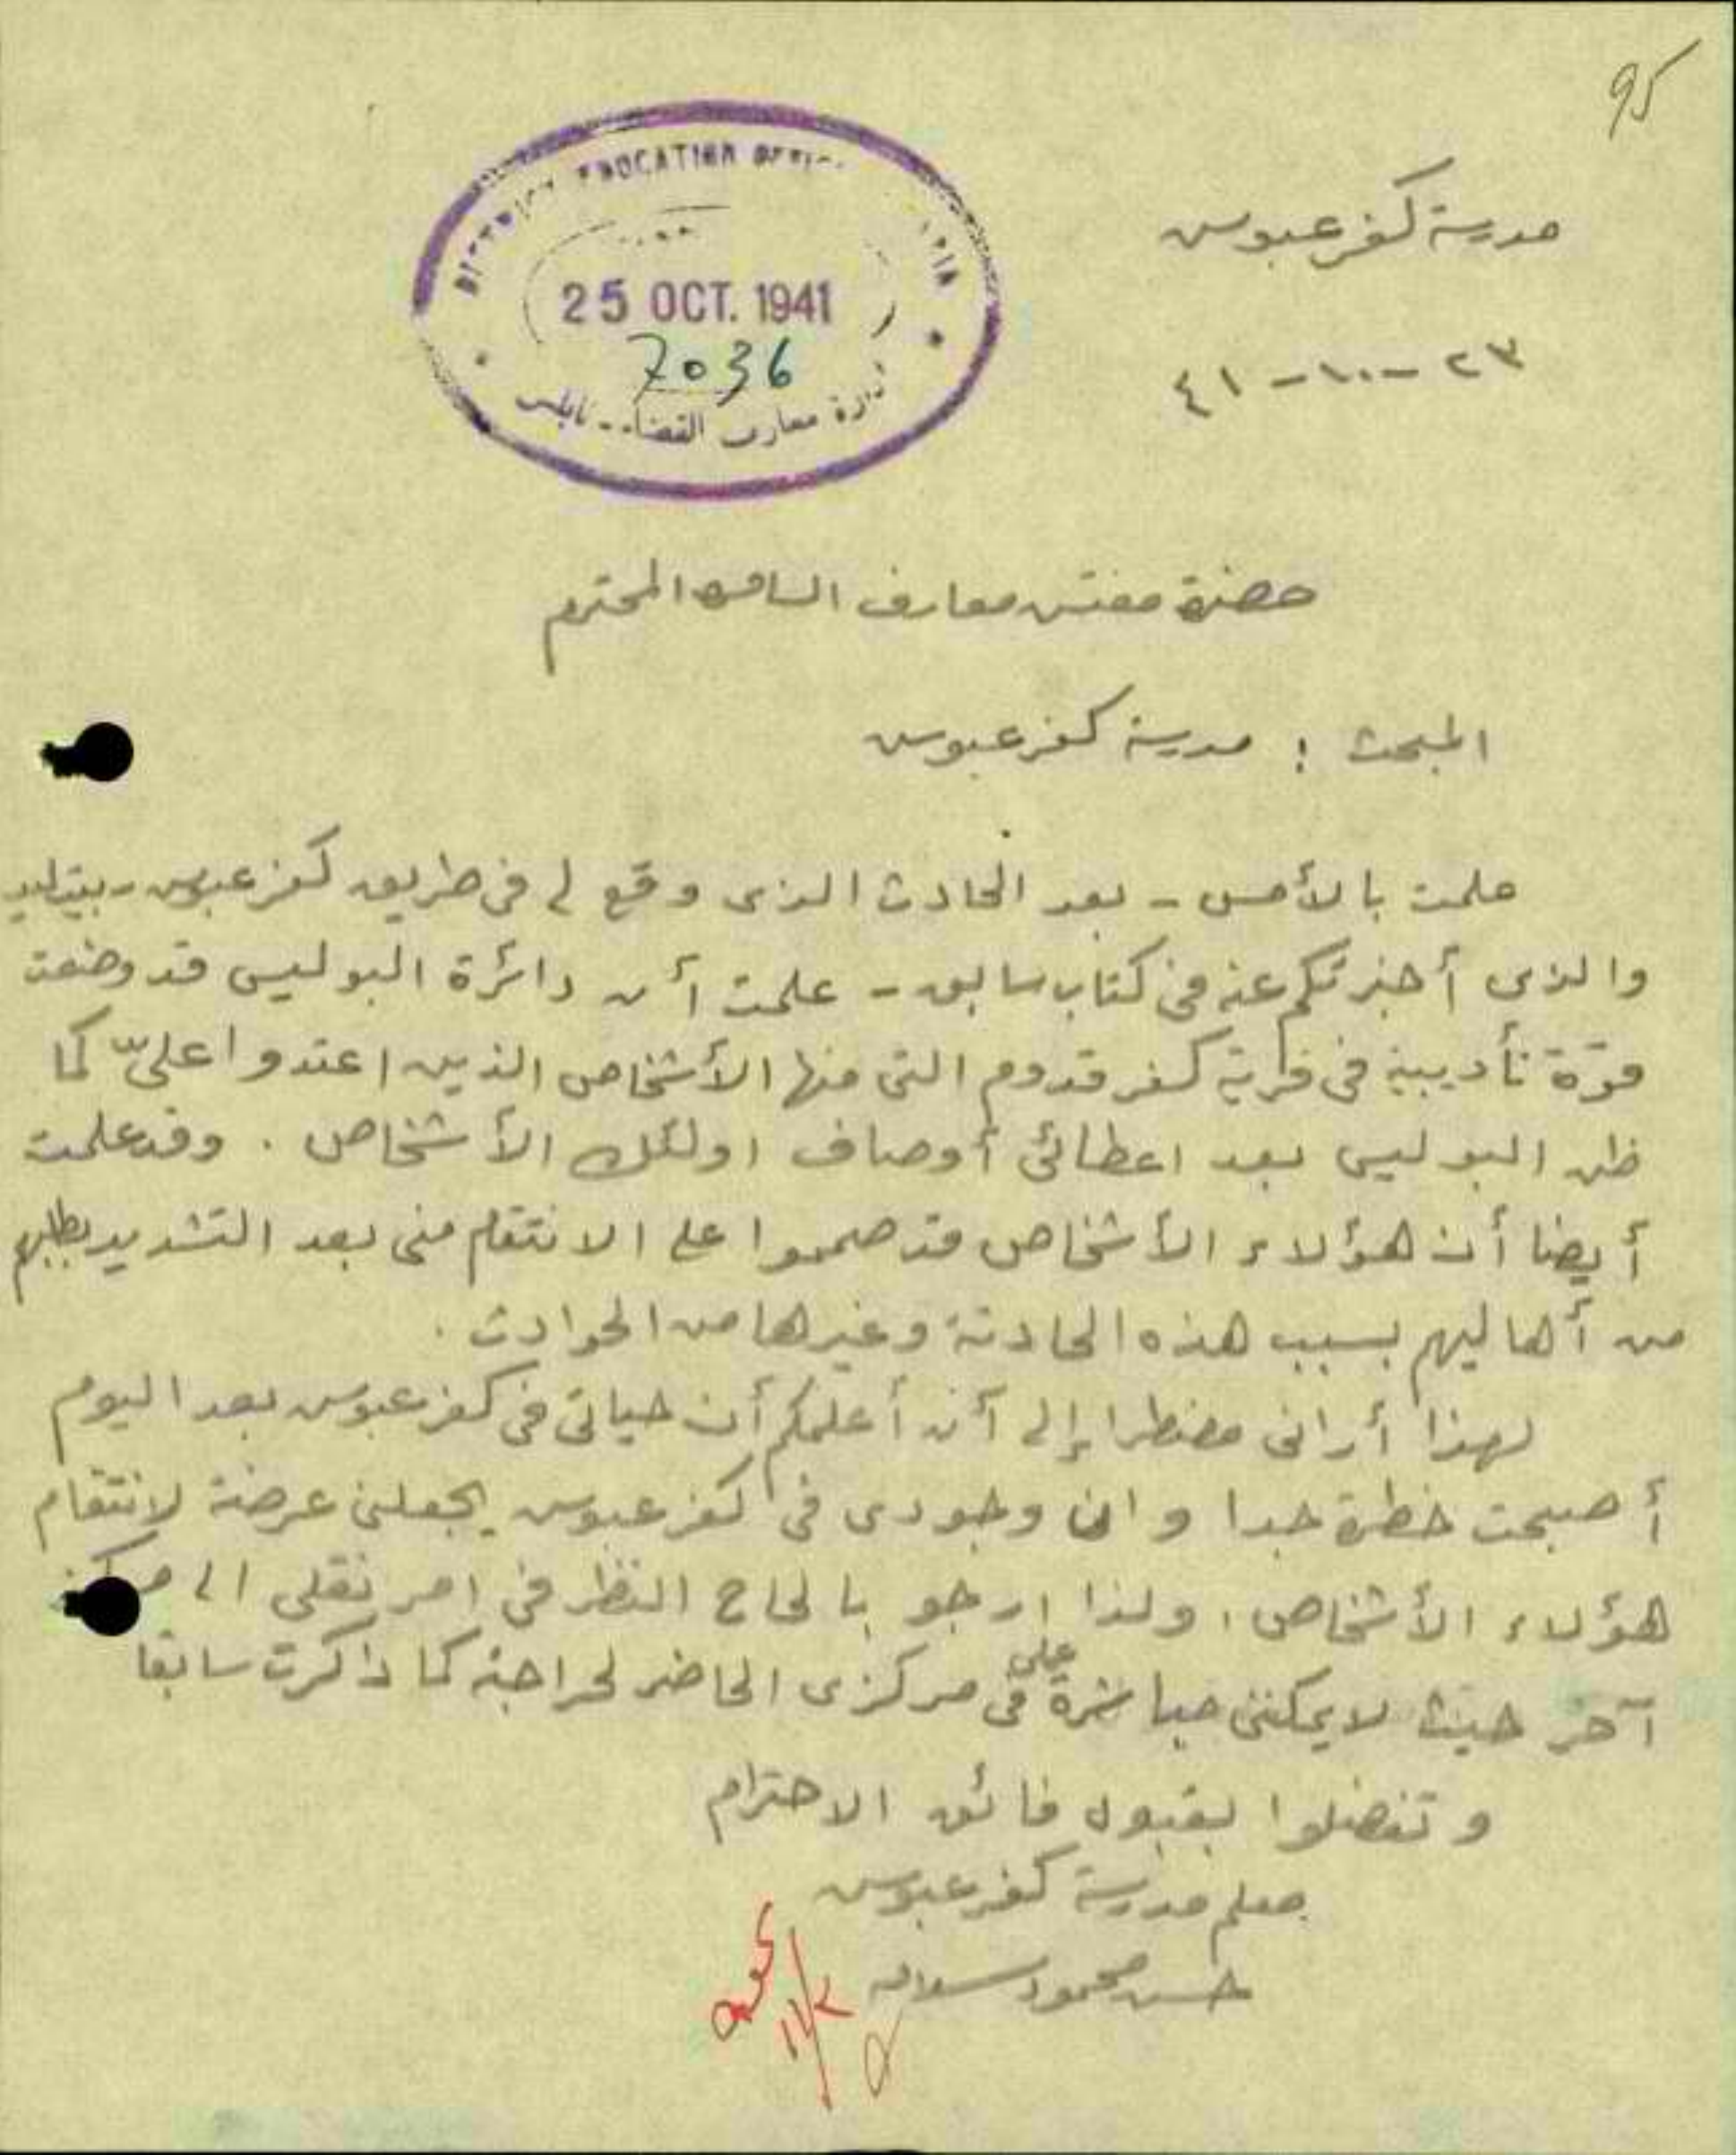 95
مدرسة كفر عبوس
٢٣-١٠-٤١
EDUCATION
25 OCT. 1941
7036
معارف القضاء - نابلس
حضرة مفتش معارف السامره المحترم
المبحث : مدرسة كفر عبوس
علمت بالأمس - بعد الحادث الذى وقع لي في طريق كفر عبوس - بيتليد
والذى أخبرتكم عنه في كتاب سابق - علمت أن دائرة البوليس قد وضعت
قوّة تأديبية في قرية كفر قدوم التي منها الأشخاص الذين اعتدوا عليّ كما
ظن البوليس بعد اعطائي أوصاف اولئك الأشخاص . وقد علمت
أيضا أن هؤلاء الأشخاص قد صمموا على الانتقام مني بعد التشديد بطلبهم
من أهاليهم بسبب هذه الحادثة وغيرها من الحوادث .
لهذا أراني مضطرا إلى أن أعلمكم أن حياتي في كفر عبوس بعد اليوم
أصبحت خطرة جدا و ان وجودى في كفر عبوس يجعلني عرضة لانتقام
هؤلاء الأشخاص، ولذا ارجو بالحاح النظر في امر نقلي الى مركز
آخر حيث لا يمكنني مباشرة على في مركزى الحاضر لحراجته كما ذكرت سابقا
و تفضلوا بقبول فائق الاحترام
معلم مدرسة كفر عبوس
حسن محمود سلامه